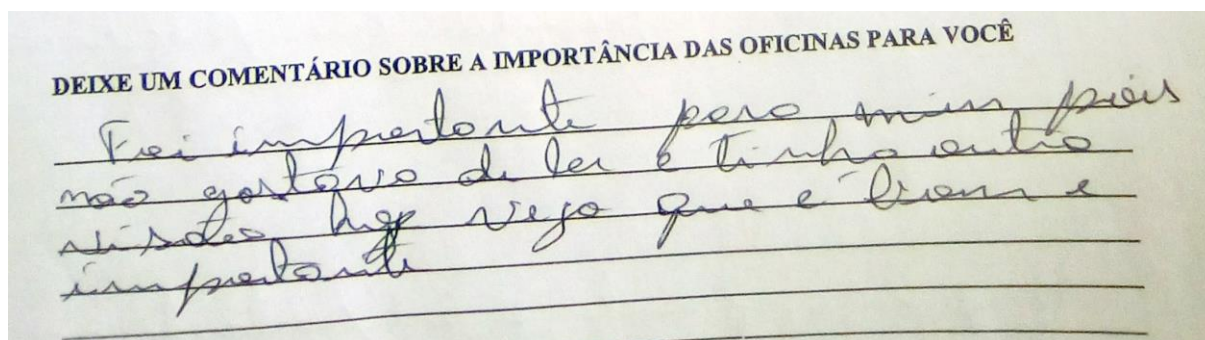 DEIXE UM COMENTÁRIO SOBRE A IMPORTÂNCIA DAS OFICINAS PARA VOCÊ
Foi importante para mim pois
não gostava de ler e tinha outra
visão hoje vejo que é bom e
importante